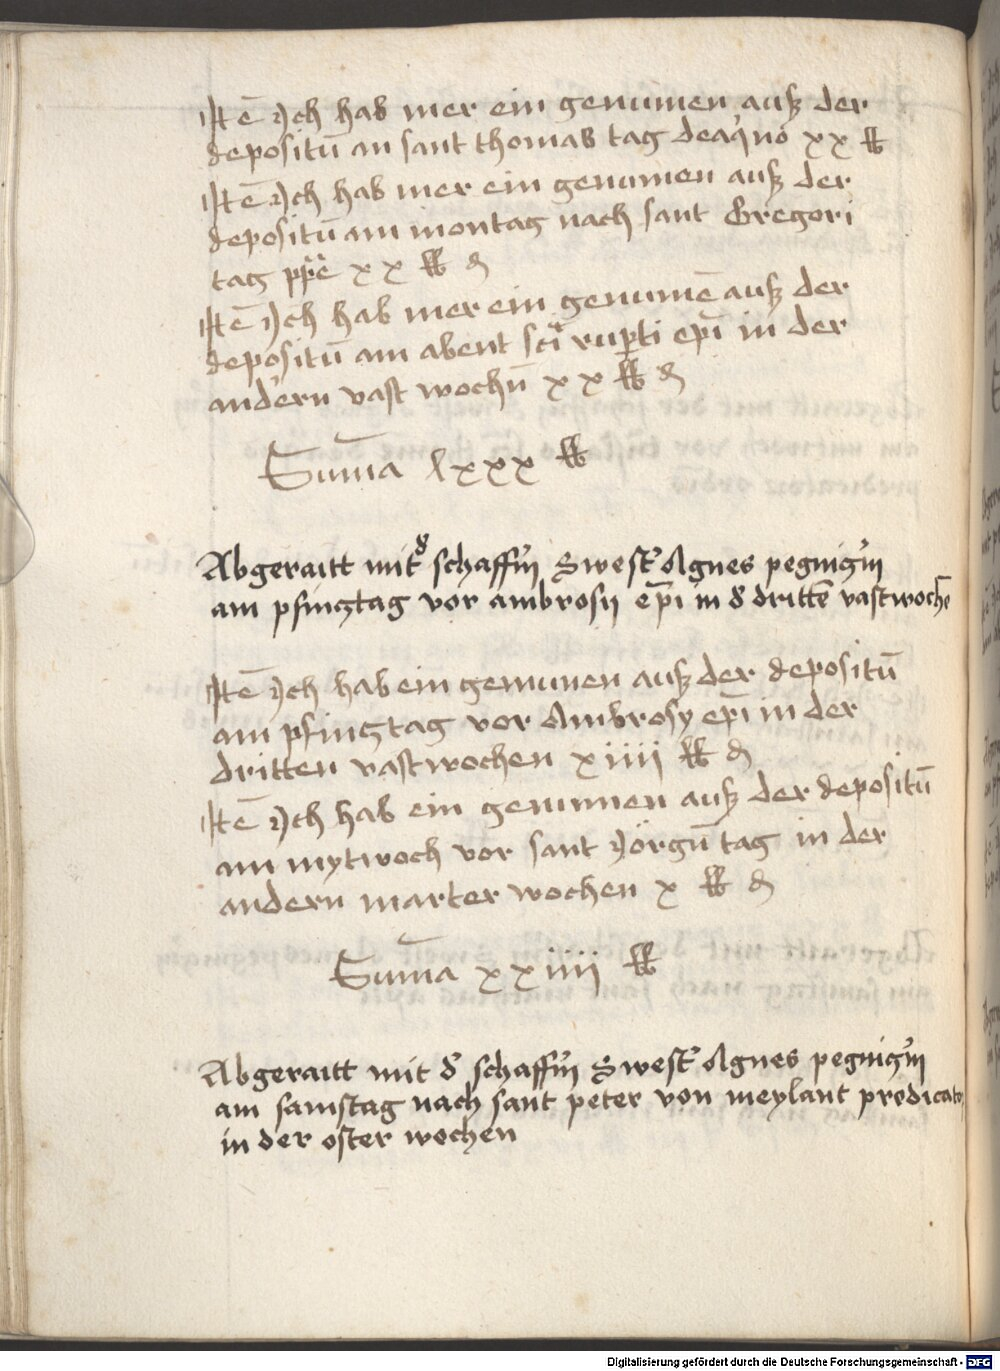 Itē Ich hab mer ein genumen auß der
depositū an sant thomas tag deaq̍no xx ℔
Itē Ich hab mer ein genumen auß der
depositū am montag nach sant Gregori
tag pp̄e xx ℔ ₰
Itē Ich hab mer ein genumē auß der
depositū am abent sc̄i rup̱ti ep̄i in der
andern vast wochn̄ xx ℔ ₰
Sum̄a lxxx ℔
Abgeraitt mit ꝺ̛ schaffn̄ Swest̛ Agnes pegnig̛in
am pfingtag vor ambrosij ep̄i in ꝺ̛ drittē vastwochē
Itē Ich hab ein genumen auß der depositū
am pfingtag vor Ambrosy ep̄i in der
dritten vastwochen xiiii ℔ ₰
Itē Ich hab ein genumen auß der depositū
am mytwoch vor sant Jörgn̄ tag in der
andern marter wochen x ℔ ₰
Sum̄a xxiiii ℔
Abgeraitt mit ꝺ̛ schaffn̄ Swest̛ Agnes pegnig̛in
am samstag nach sant peter von meylant predicato
in der oster wochen
Digitalisierung gefördert durch die Deutsche Forschungsgemeinschaft - DFG